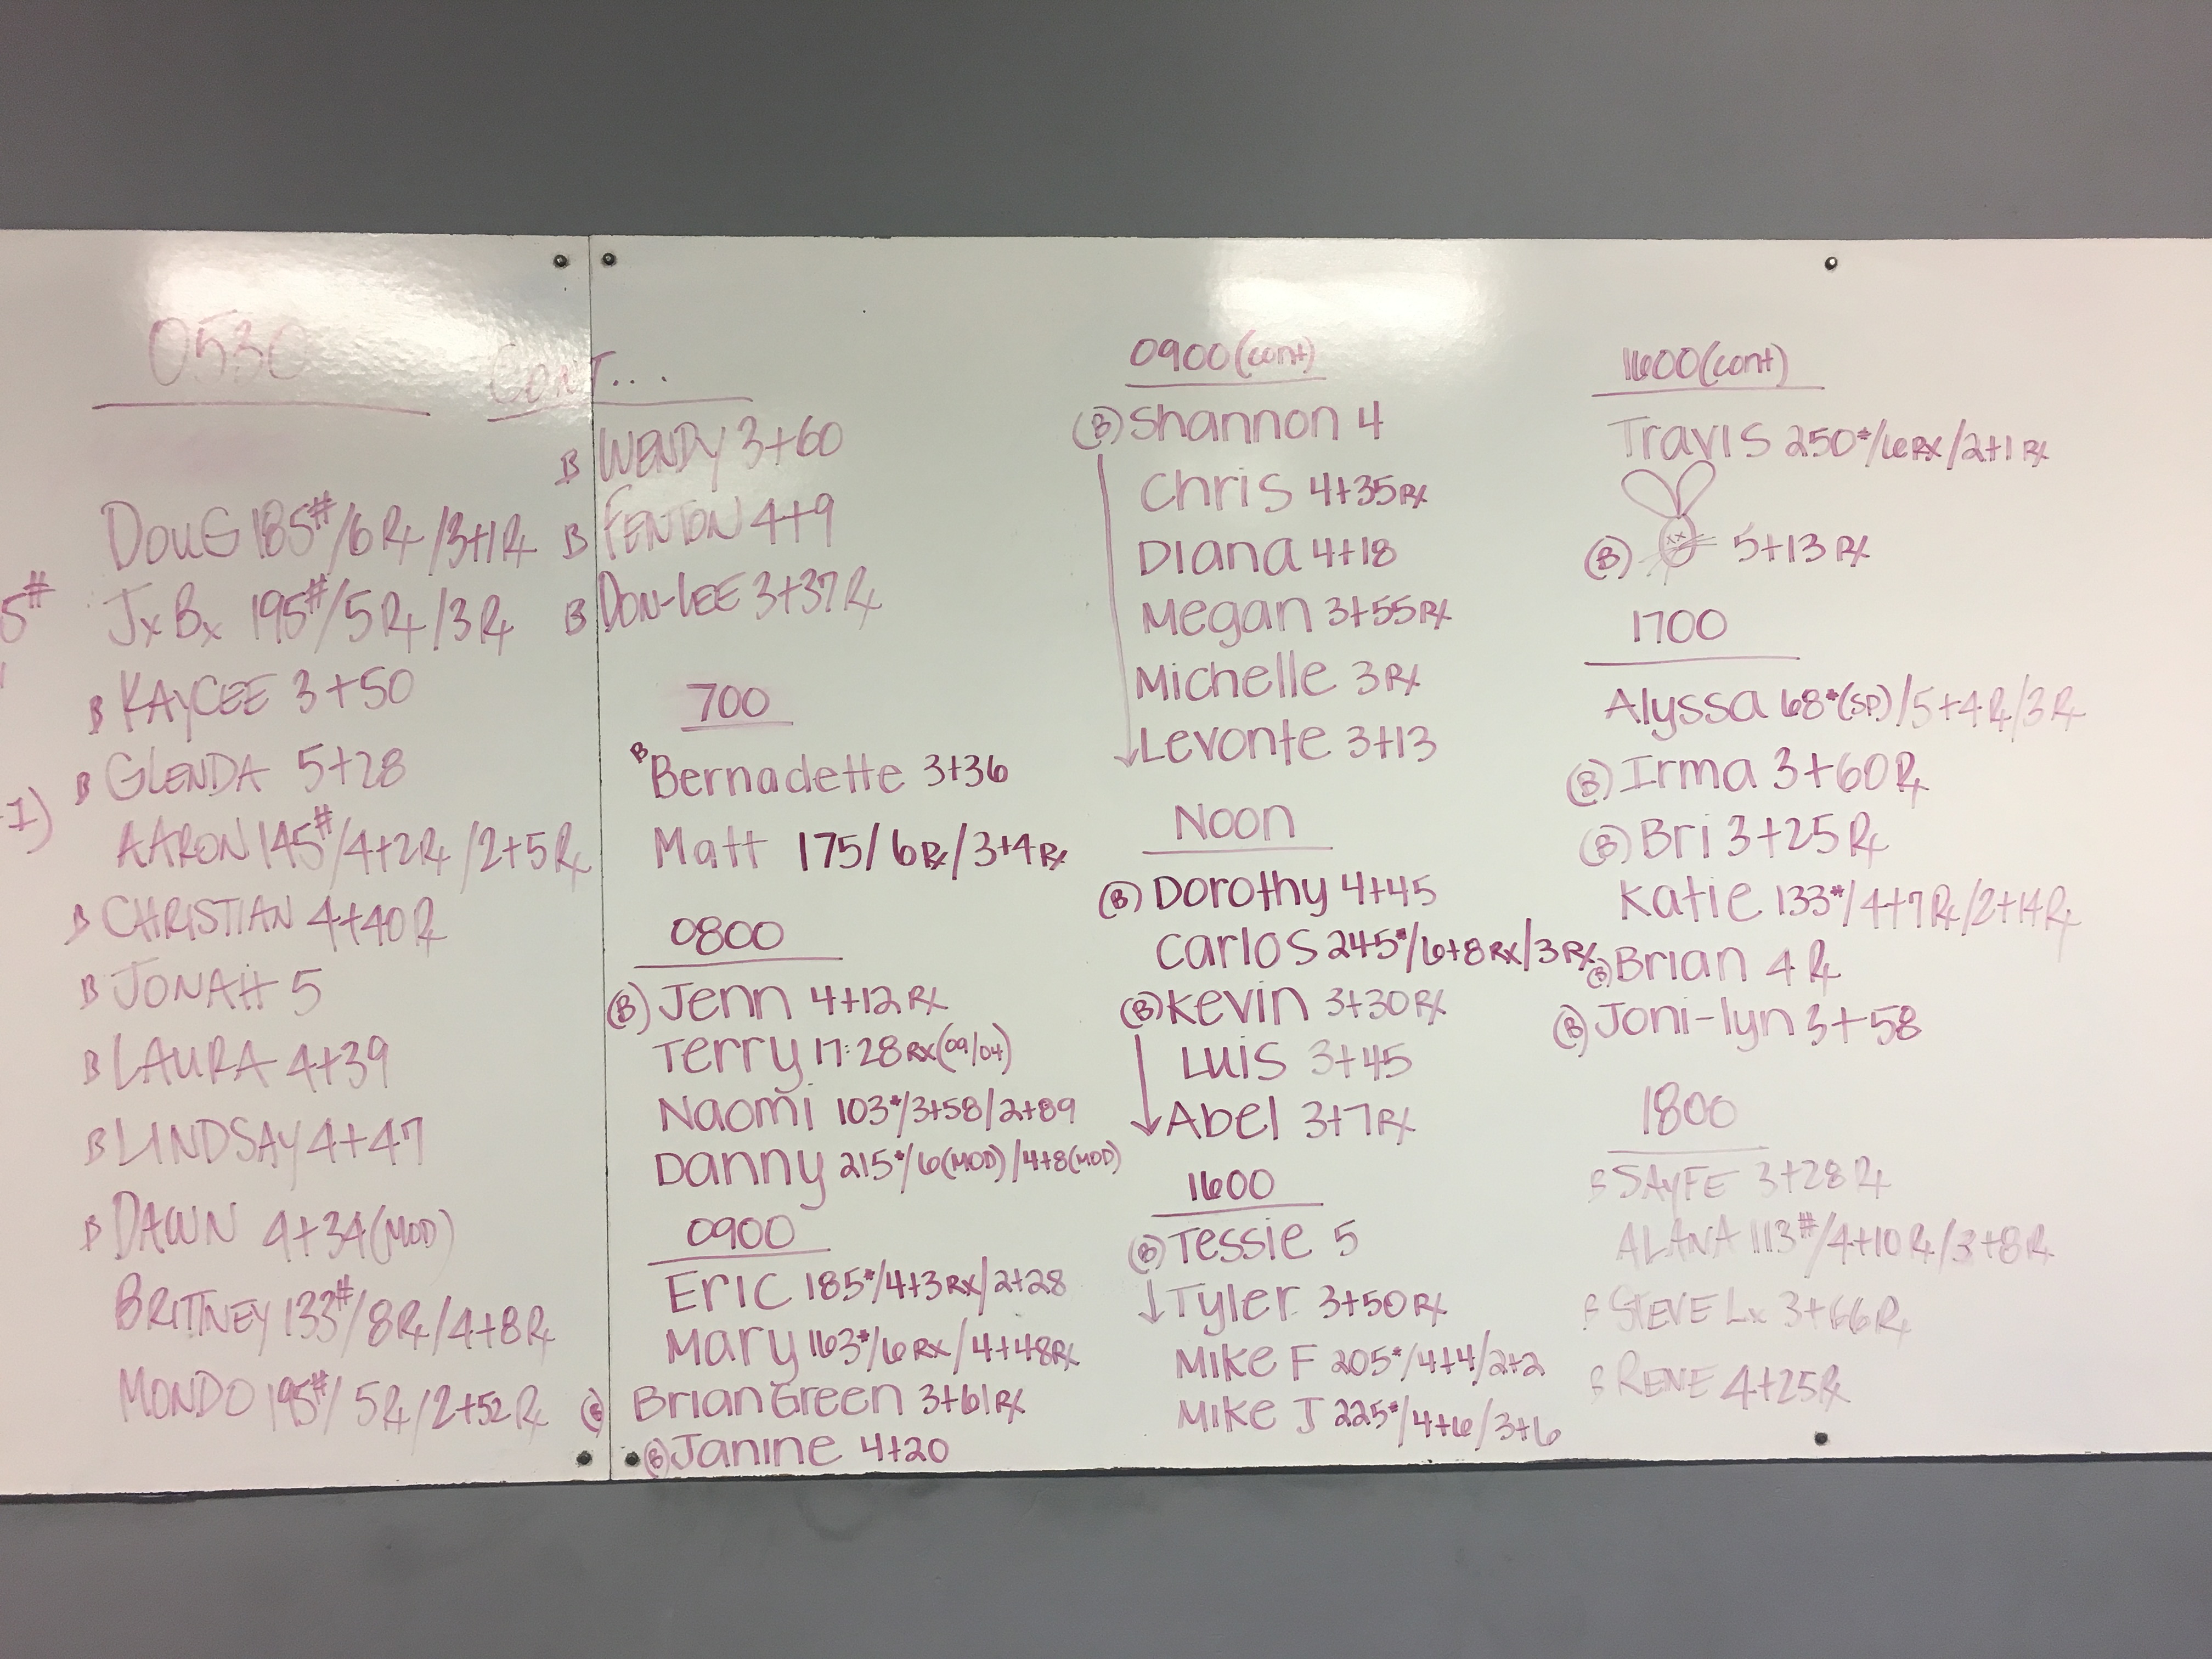 0530
5#
DOUG 185#/6Rx/3+1Rx
JxBx 195#/5Rx/3Rx
B KAYCEE 3+50
B GLENDA 5+28
AARON 145#/4+2Rx/2+5Rx
B CHRISTIAN 4+40Rx
B JONAH 5
B LAURA 4+39
B LINDSAY 4+47
B DAWN 4+34(MOD)
BRITTNEY 133#/8Rx/4+8Rx
MONDO 195#/5Rx/2+52Rx
CONT...
B WENDY 3+60
B FENTON 4+9
B DON-LEE 3+37Rx
700
B Bernadette 3+36
Matt 175/6Rx/3+4Rx
0800
(B) Jenn 4+12Rx
Terry 17:28Rx(09/04)
Naomi 103#/3+58/2+89
Danny 215#/6(MOD)/4+8(MOD)
0900
Eric 185#/4+3Rx/2+28
Mary 163#/6Rx/4+48Rx
(B) Brian Green 3+61Rx
(B) Janine 4+20
0900(cont)
(B) Shannon 4
Chris 4+35Rx
Diana 4+18
Megan 3+55Rx
Michelle 3Rx
Levonte 3+13
Noon
(B) Dorothy 4+45
Carlos 245#/6+8Rx/3Rx
(B) Kevin 3+30Rx
Luis 3+45
Abel 3+7Rx
1600
(B) Tessie 5
Tyler 3+50Rx
Mike F 205#/4+4/2+2
Mike J 225#/4+6/3+6
1600(cont)
Travis 250#/6Rx/2+1Rx
(B) 5+13Rx
1700
Alyssa 68#(SP)/5+4Rx/3Rx
(B) Irma 3+60Rx
(B) Bri 3+25Rx
Katie 133#/4+7Rx/2+14Rx
(B) Brian 4Rx
(B) Joni-lyn 3+58
1800
B SAYFE 3+28Rx
ALANA 113#/4+10Rx/3+8Rx
B STEVE Lx 3+66Rx
B RENE 4+25Rx